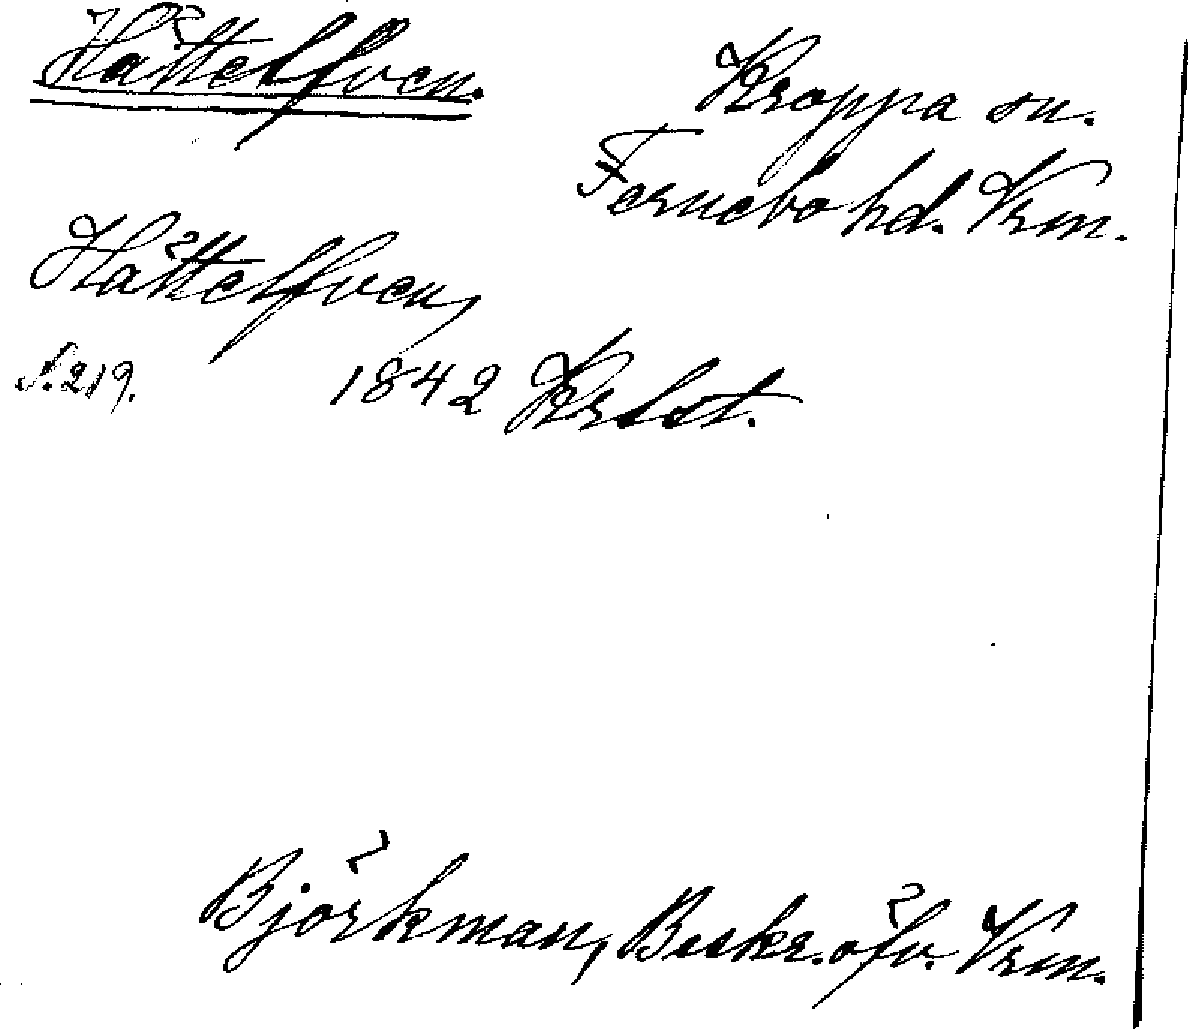 Hättelfven.
Kroppa sn.
Fernebo hd. Vrm.
Hättelfven,
N. 219. 1842 Krbst.
Björkman, Beskr. öfv. Vrm.